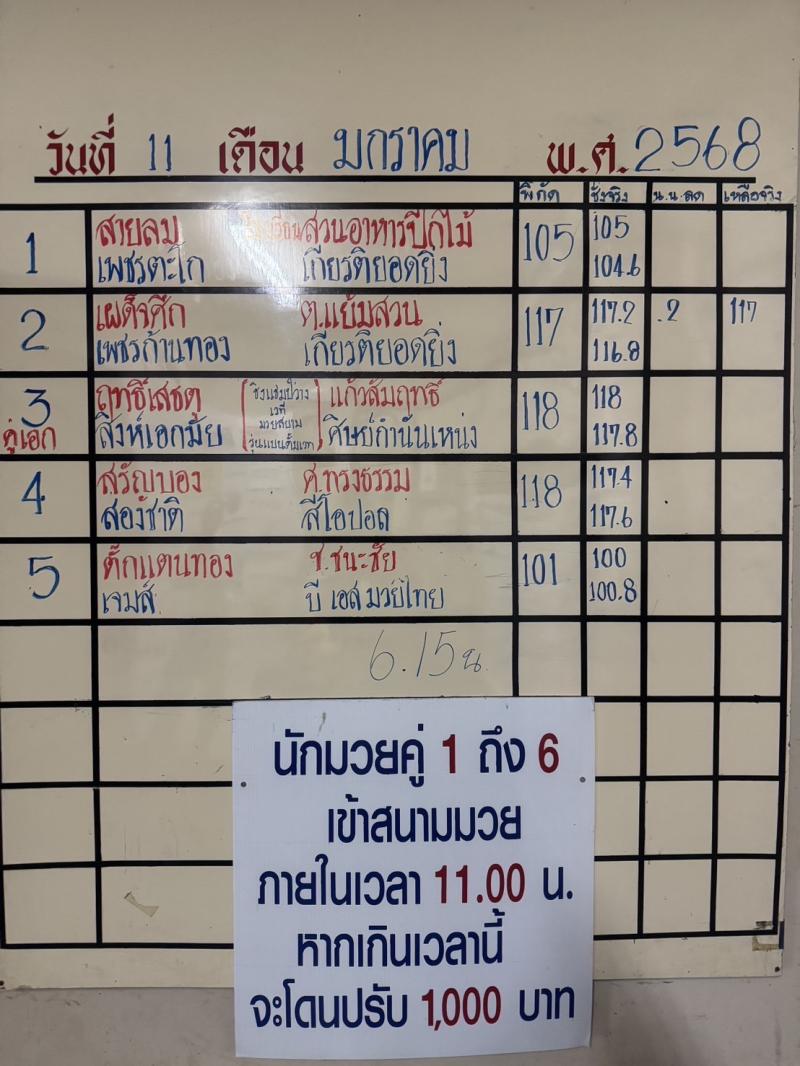 วันที่ 11 เดือน มกราคม พ.ศ. 2568
พิกัด ชั่งจริง น.น.ลด เหลือจริง
1 สายลม สวนอาหารปีกไม้ 105 105
เพชรตะโก เกียรติยอดยิ่ง 104.6
2 เผด็จศึก ต.แย้มสวน 117 117.2 .2 117
เพชรก้านทอง เกียรติยอดยิ่ง 116.8
3 ฤทธิ์เสชตุ แก้วสัมฤทธิ์ 118 118
คู่เอก สิงห์เอกมัย ศิษย์กำนันเหน่ง 117.8
ชิงแชมป์ว่าง
เวที
มวยสยาม
รุ่นแบนตั้มเวท
4 สรัญบอง ศ.ทรงธรรม 118 117.4
สองชาติ สีโอปอล 117.6
5 ตั๊กแตนทอง ช.ชนะชัย 101 100
เจมส์ บี เอส มวยไทย 100.8
6.15 น.
นักมวยคู่ 1 ถึง 6
เข้าสนามมวย
ภายในเวลา 11.00 น.
หากเกินเวลานี้
จะโดนปรับ 1,000 บาท